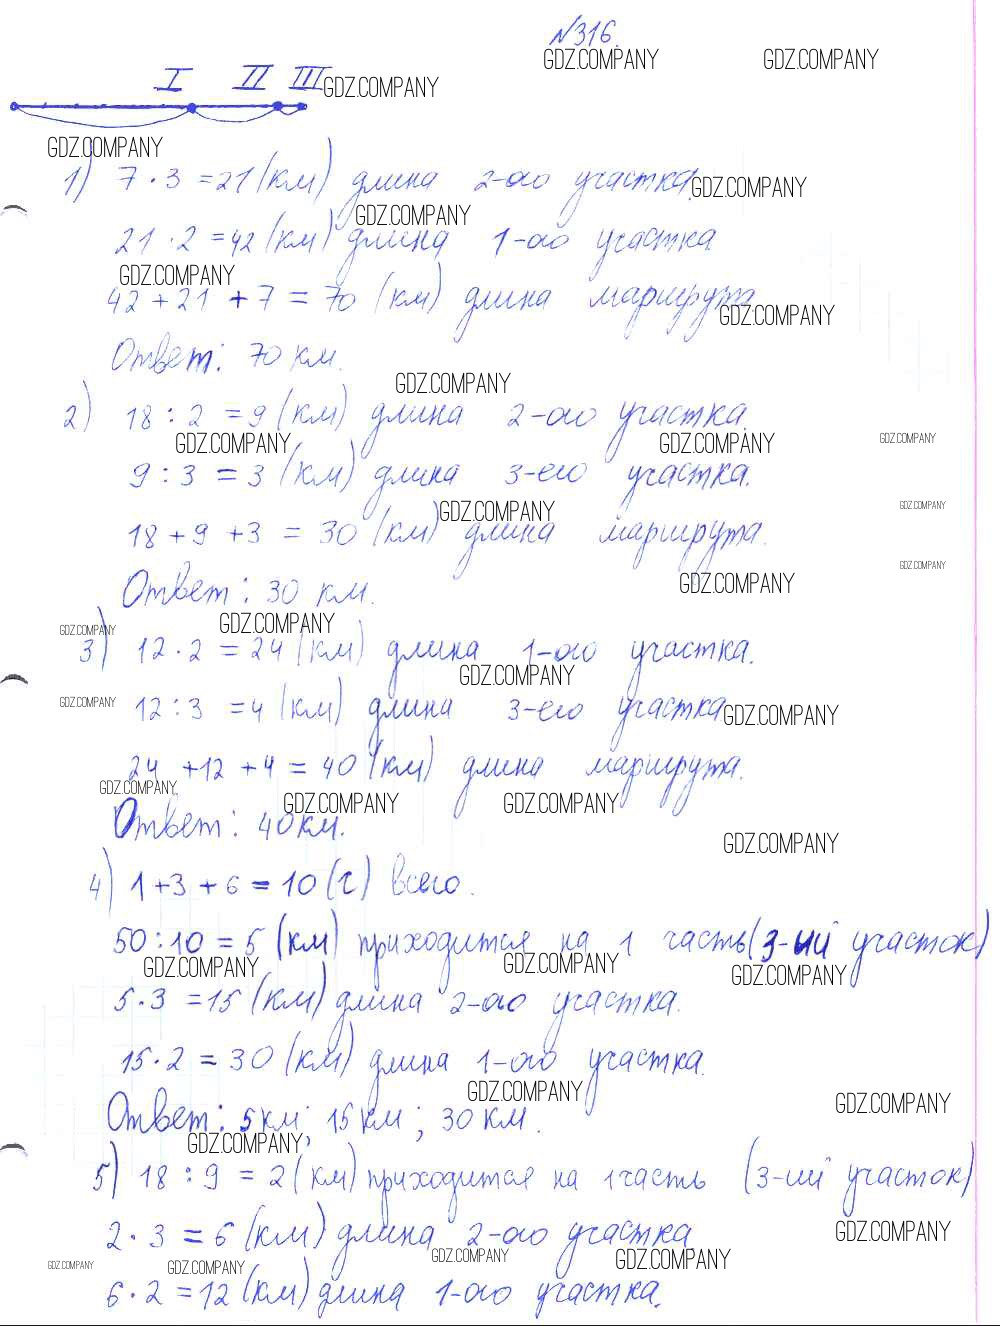 №316.
GDZ.COMPANY GDZ.COMPANY
I II III GDZ.COMPANY
GDZ.COMPANY
1) 7 · 3 = 21 (км) длина 2-ого участка. GDZ.COMPANY
GDZ.COMPANY
21 · 2 = 42 (км) длина 1-ого участка
GDZ.COMPANY
42 + 21 + 7 = 70 (км) длина маршрута
GDZ.COMPANY
Ответ: 70 км.
GDZ.COMPANY
2) 18 : 2 = 9 (км) длина 2-ого участка.
GDZ.COMPANY GDZ.COMPANY GDZ.COMPANY
9 : 3 = 3 (км) длина 3-его участка.
GDZ.COMPANY GDZ.COMPANY
18 + 9 + 3 = 30 (км) длина маршрута.
GDZ.COMPANY
GDZ.COMPANY
Ответ: 30 км.
GDZ.COMPANY GDZ.COMPANY
3) 12 · 2 = 24 (км) длина 1-ого участка.
GDZ.COMPANY
GDZ.COMPANY
12 : 3 = 4 (км) длина 3-его участка GDZ.COMPANY
24 + 12 + 4 = 40 (км) длина маршрута.
GDZ.COMPANY GDZ.COMPANY GDZ.COMPANY
Ответ: 40 км.
GDZ.COMPANY
4) 1 + 3 + 6 = 10 (ч) всего.
50 : 10 = 5 (км) приходится на 1 часть (3-ий участок)
GDZ.COMPANY GDZ.COMPANY GDZ.COMPANY
5 · 3 = 15 (км) длина 2-ого участка.
15 · 2 = 30 (км) длина 1-ого участка.
GDZ.COMPANY GDZ.COMPANY
Ответ: 5 км; 15 км; 30 км.
GDZ.COMPANY
5) 18 : 9 = 2 (км) приходится на 1 часть (3-ий участок)
2 · 3 = 6 (км) длина 2-ого участка GDZ.COMPANY
GDZ.COMPANY GDZ.COMPANY GDZ.COMPANY GDZ.COMPANY
6 · 2 = 12 (км) длина 1-ого участка.